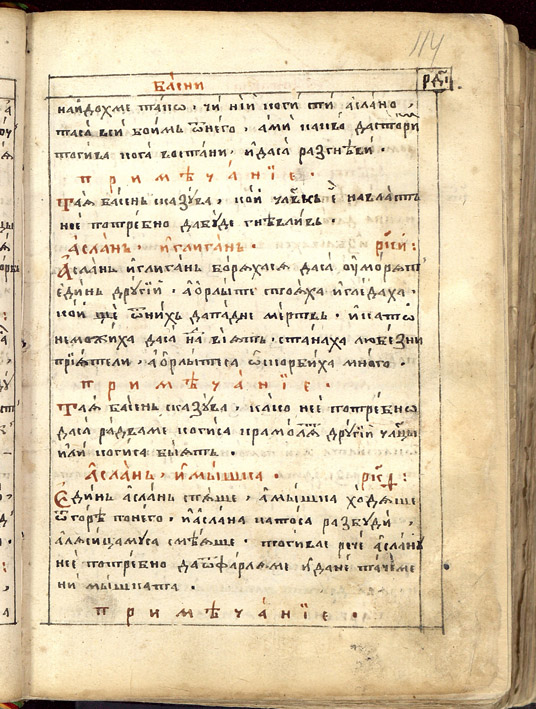 114
Ба́сни
рд҃і
найдохме тако̀, чи ній коги сти а́слано,
таса вси боимъ ѿнего, а́ми какво̀ дастори
тогива кога востани, и́даса разгнѣви.
примѣча́нїе.
Тая ба́сень сказува, ко́й чл҃вкъ е҆ навласть
нее потребно дабуде гнѣвливь.
А́слань, и҆глигань. рс҃и:
А́слань и҆глигань, боряхася даса оу҆моря́ть
еди́нь дрꙋгїй, а҆о҆рлы́те стоя́ха и҆гле́даха,
ко́й ще ѿнихъ дападне ме́ртвь, и҆като̀
неможиха даса на́ вия́ть, стана́ха любе́зни
прїя́тели, а҆о҆рлы́теса ѿскорбиха мно́го.
примѣча́нїе.
Тая ба́сень сказува, како нее потребно
даса ра́дваме когиса крамоля́ дрꙋгїй чл҃цы
и҆ли когиса бия́ть.
А́слань, и҆мы́шка. рс҃ѳ:
Еди́нь а́слань спя́ше, а҆мы́шка ходя́ше
ѿго́рѣ поне́го, и҆а҆слана катоса разбуди,
а҆ляси́цамуса смѣя́ше. тогива рече́ а҆слань
нее потребно даѿфарляме и҆дане та́чеме
ни мы́шката.
примѣча́нїе.